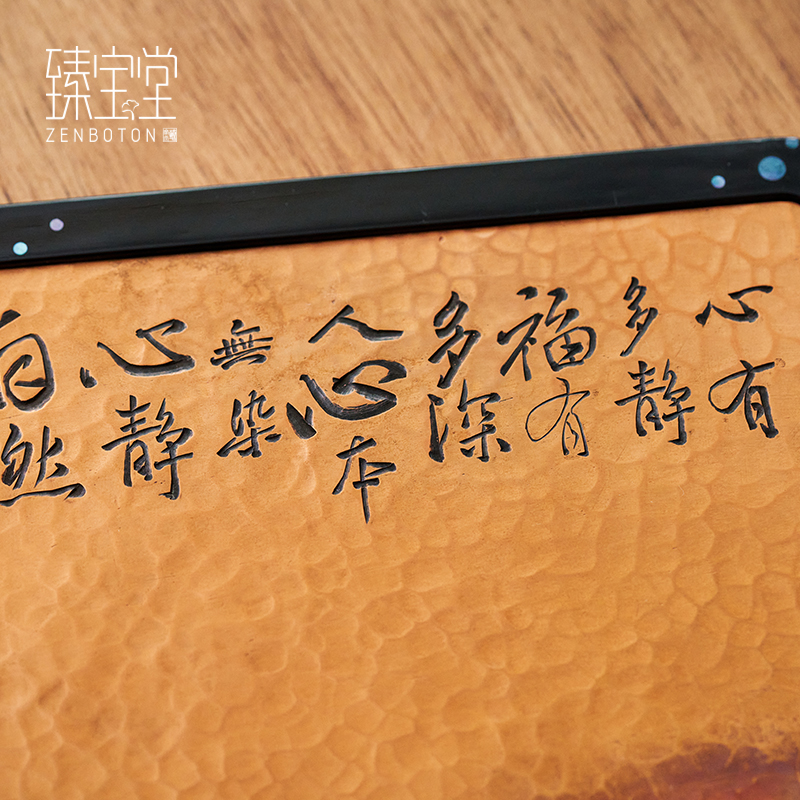 臻宝堂
ZENBOTON
心有
多静
福有
多深
人心本
無染
心静
自然